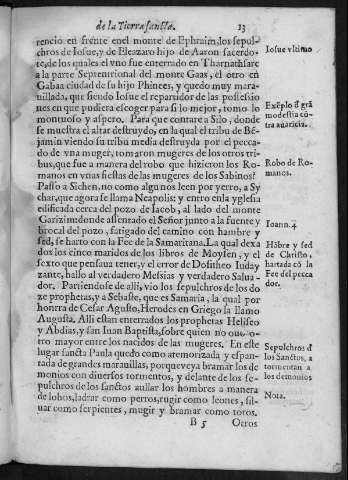 de la Tierra sancta. 23
rencio en frente enel monte de Ephraim, los sepul-
chros de Iosue, y de Eleazaro hijo de Aaron sacerdo-
te, de los quales el vno fue enterrado en Tharnathsare
a la parte Septentrional del monte Gaas, el otro en
Gabaa ciudad de su hijo Phinees, y quedo muy mara-
uillada, que siendo Iosue el repartidor de las possessio
nes en que pudiera escoger para si lo mejor, tomo lo
montuoso y aspero. Para que contare a Silo, donde
se muestra el altar destruydo, en la qual el tribu de Bē-
jamin viendo su tribu media destruyda por el pecca-
do de vna muger, tomaron mugeres de los otros tri-
bus, que fue a manera del robo que hizieron los Ro-
manos en vnas fiestas de las mugeres de los Sabinos?
Passo a Sichen, no como algunos leen por yerro, a Sy
char, que agora se llama Neapolis: y entro en la yglesia
edificada cerca del pozo de Iacob, al lado del monte
Garizim donde assentado el Señor junto a la fuente y
brocal del pozo, fatigado del camino con hambre y
sed, se harto con la Fee de la Samaritana. La qual dexa
dos los cinco maridos de los libros de Moysen, y el
sexto que pensaua tener, y el error de Dositheo Iuday
zante, hallo al verdadero Messias y verdadero Salua-
dor. Partiendose de alli, vio los sepulchros de los do
ze prophetas, y a Sebaste, que es Samaria, la qual por
honrra de Cesar Agusto, Herodes en Griego la llamo
Augusta. Alli estan enterrados los prophetas Heliseo
y Abdias, y san Iuan Baptista, sobre quien no vuo o-
tro mayor entre los nacidos de las mugeres. En este
lugar sancta Paula quedo como atemorizada, y espan-
tada de grandes marauillas, porque veya bramar los de
monios con diuersos tormentos, y delante de los se-
pulchros de los sanctos aullar los hombres a manera
de lobos, ladrar como perros, rugir como leones, sil-
uar como serpientes, mugir y bramar como toros.
B 5 Otros
Iosue vltimo
Exēplo d grā
modestia cō-
tra auaricia.
Robo de Ro-
manos.
Ioann. 4
Hābre y sed
de Christo,
hartada cō la
Fee del pecca
dor.
Sepulchros d
los Sanctos, a
tormentan a
los demonios
Nota.